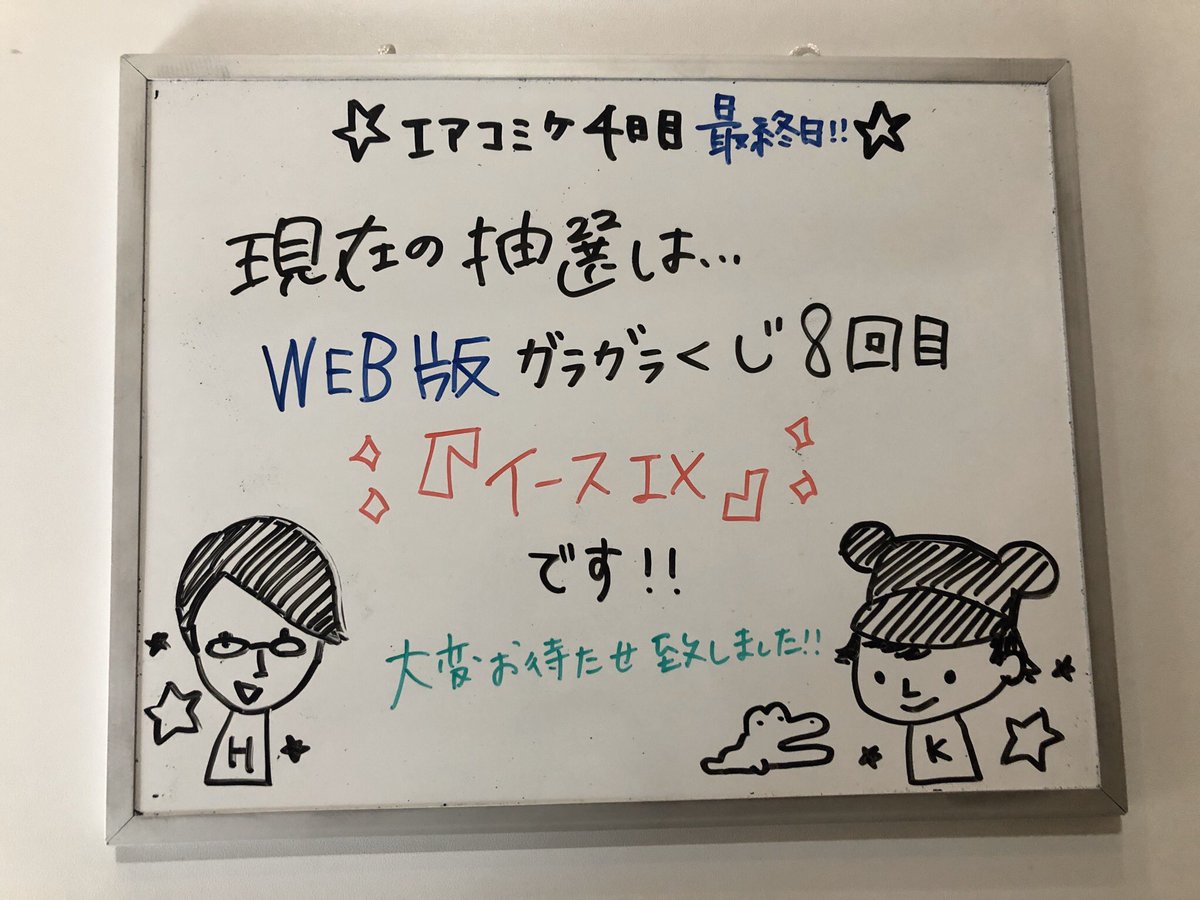 ☆エアコミケ4日目 最終日!!☆
現在の抽選は...
WEB版 ガラガラくじ8回目
『イースIX』
です!!
大変お待たせ致しました!!
H
K